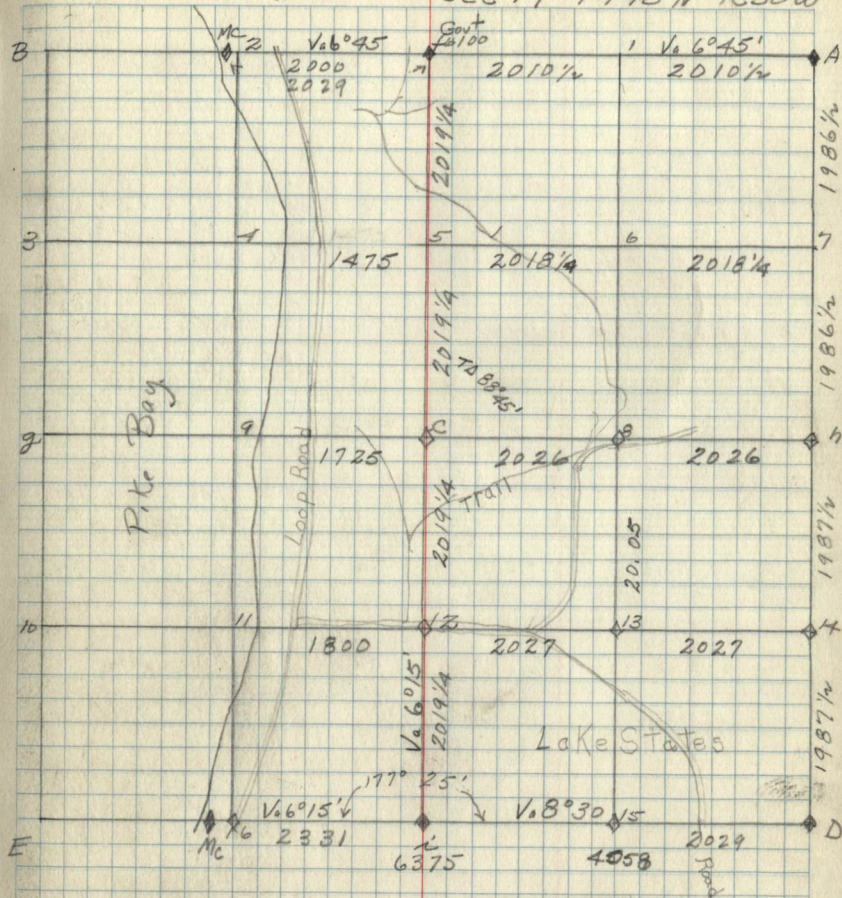 B MC 2 Va 6°45 Gov't 6100 1 Va 6°45' A
2000 n 2010½ 2010½
2029
2019¼ 1986½
3 4 5 6 7
1475 2018¼ 2018¼
2019¼ 1986½
TΔ 88°45'
Pike Bay
g 9 C 8 h
Loop Road 1725 2026 2026
Trail
2019¼ 20.05 1987½
10 11 12 13 14
1800 2027 2027
Va 6°15'
2019¼ 1987½
Lake States
177° 25'
Va 6°15' Va 8°30 15 D
E Mc 6 2331 i 2029
6375 4058 Road